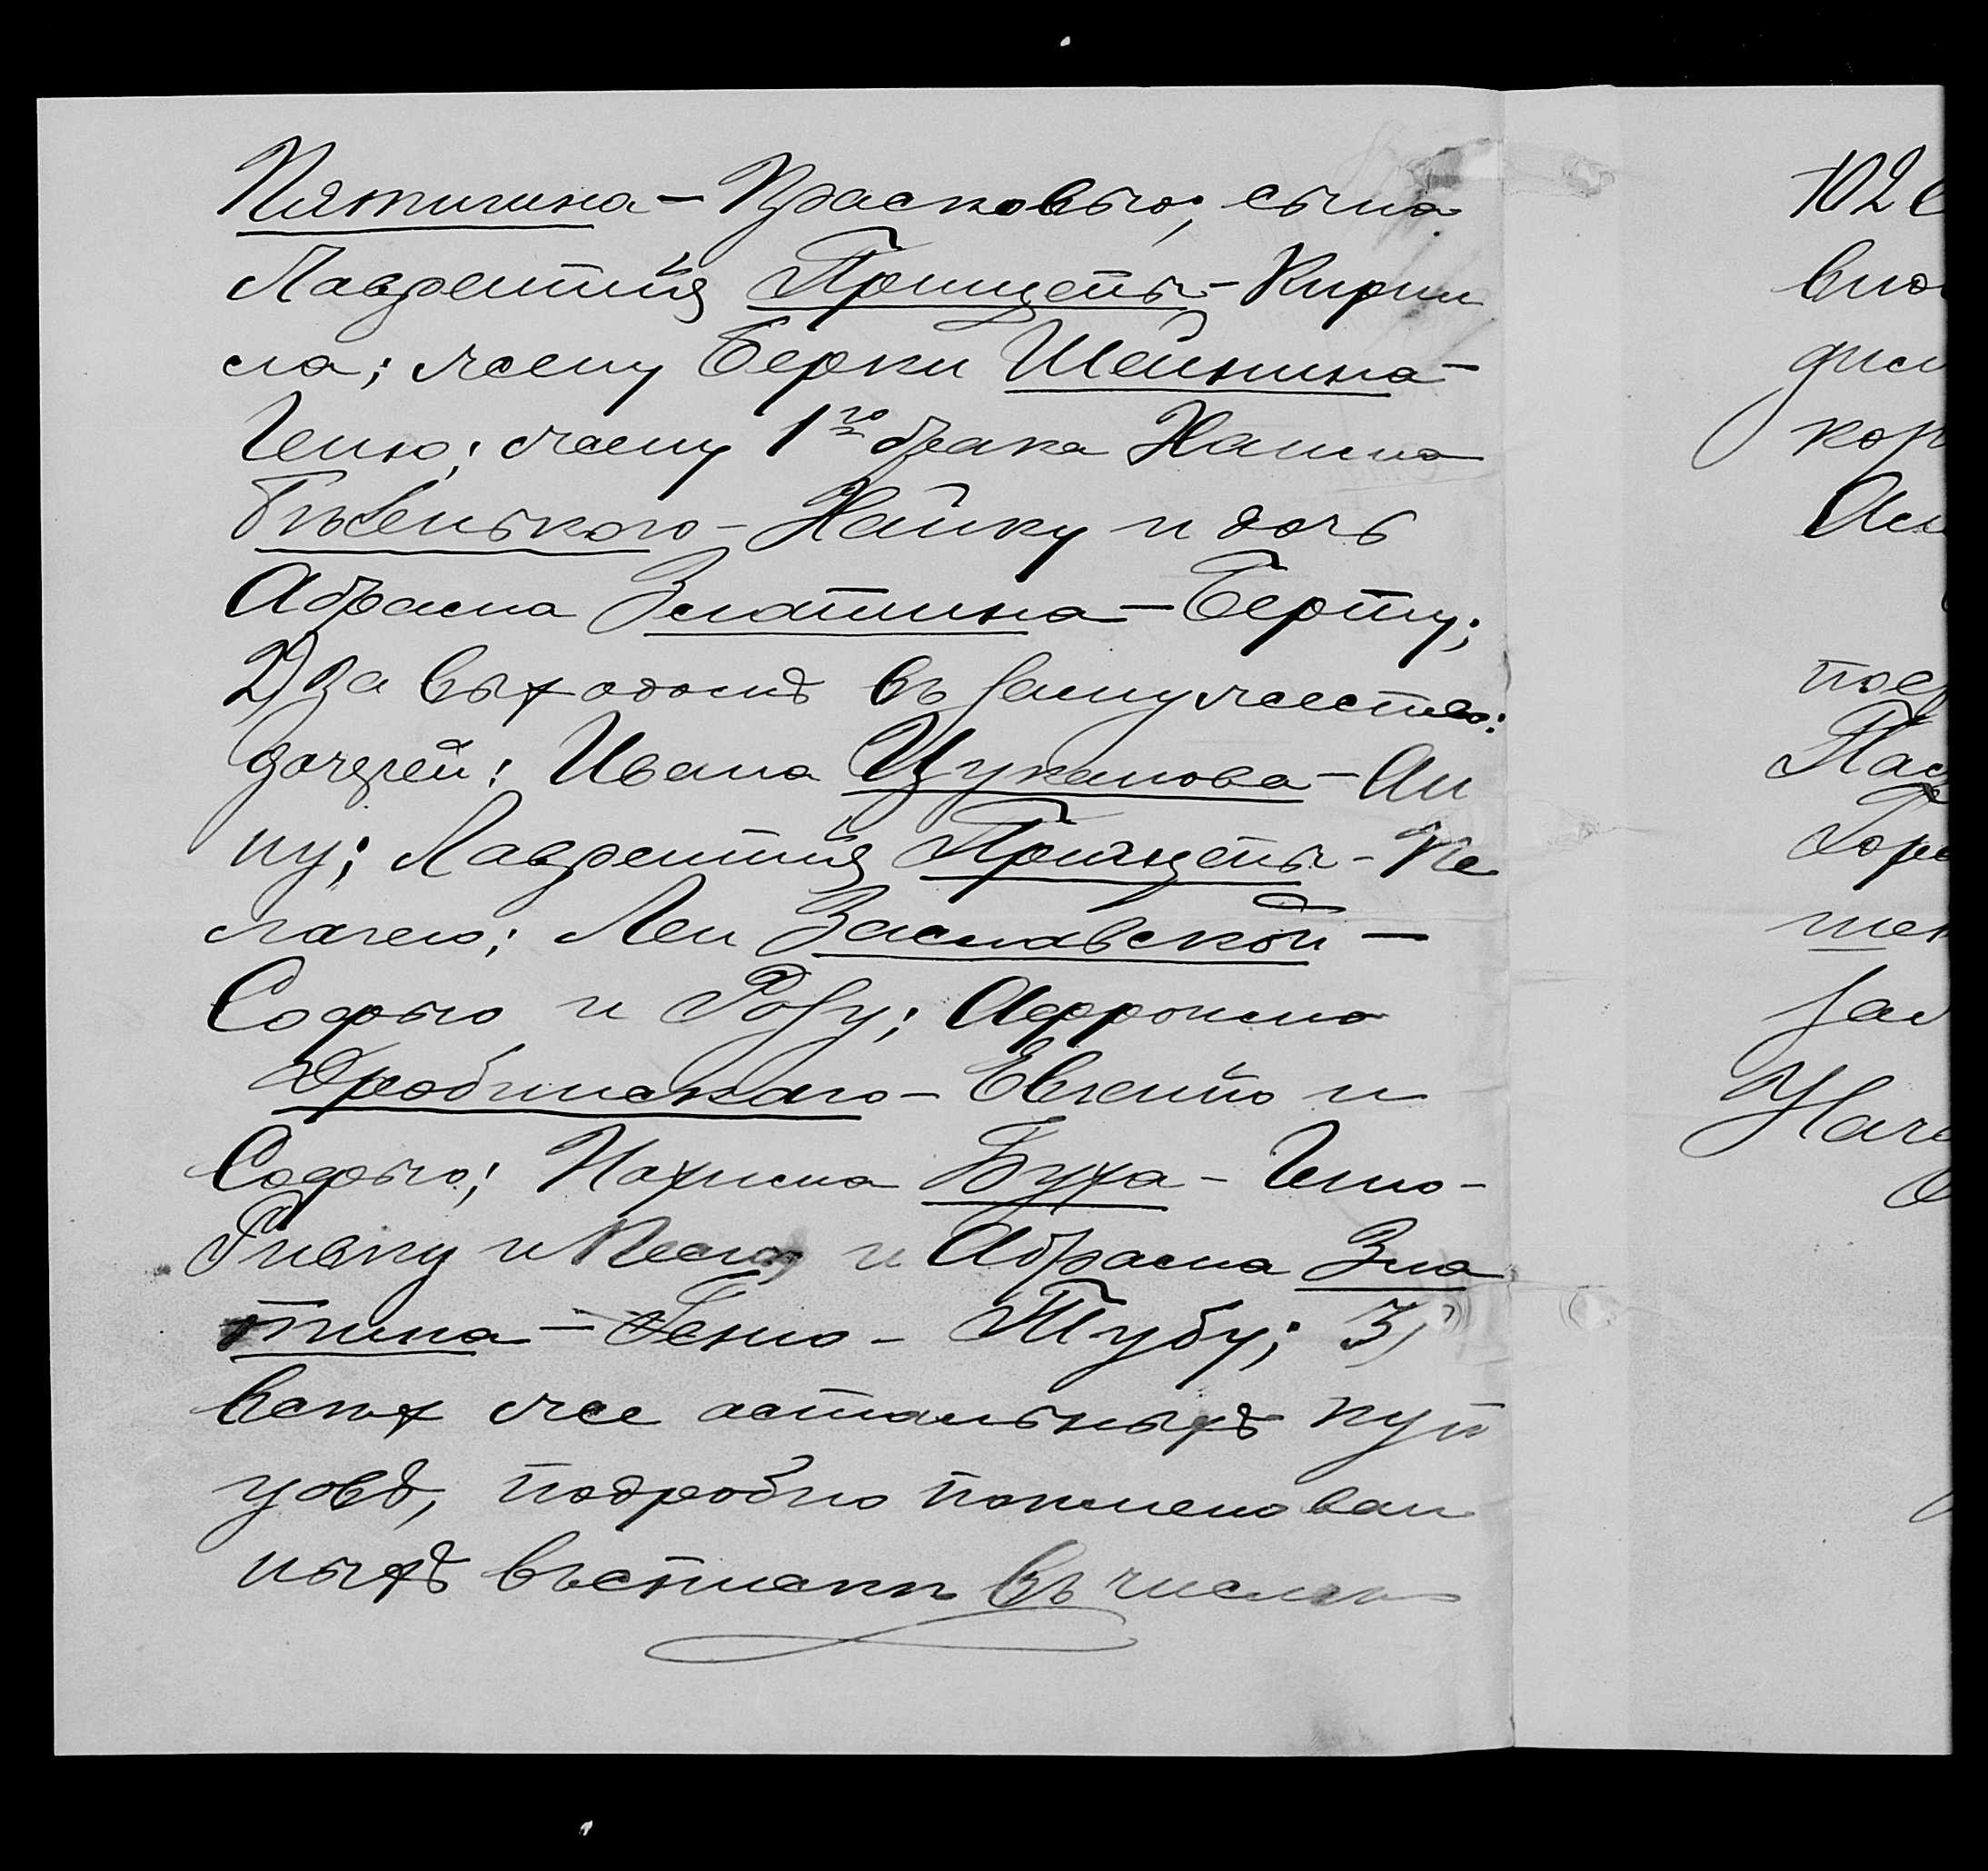 Пятигина – Прасковью; сына
Лаврентия Прищепы – Кирил
ла; жену Берки Шейнина –
Геню; жену 1го брака Наима
Бѣленького – Хайку и дочь
Абрама Златина – Берту;
2) За выходомъ въ замужество:
дочерей: Ивана Цуканова – Ан
ну; Лаврентия Прищепы – Пе
лагею; Леи Заславской –
Софью и Розу; Афроима
Дробинскаго – Евгенію и
Софью; Нахима Буха – Геню-
Ривку и Песю и Абрама Зла
тина – Геню-Тубу; 3)
всѣхъ же остальныхъ куп
цовъ, подробно поименован
ныхъ въ спискѣ въ числѣ
102
вно
дис
коп
пос
Пав
Горо
шен
зав
Нача